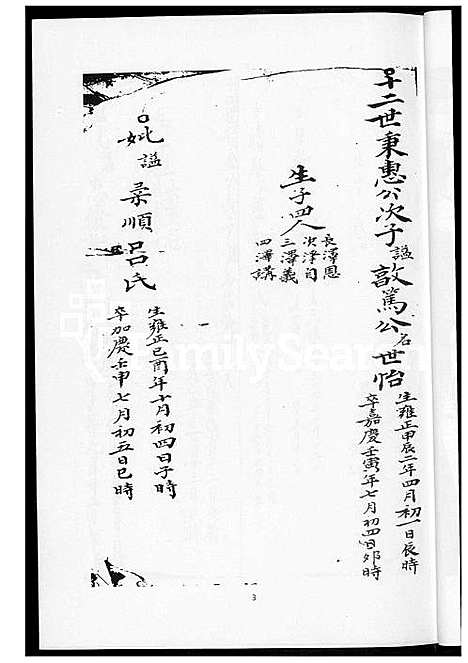 十二世秉惠公次子謚敦篤公名世怡
生雍正甲辰二年四月初一日辰時
卒嘉慶壬寅年七月初四日卯時
生子四人
長澤恩
次澤
三澤義
四澤講
妣謚柔順呂氏
生雍正己酉年十月初四日子時
卒加慶壬申七月初五日巳時
FamilySearch
3